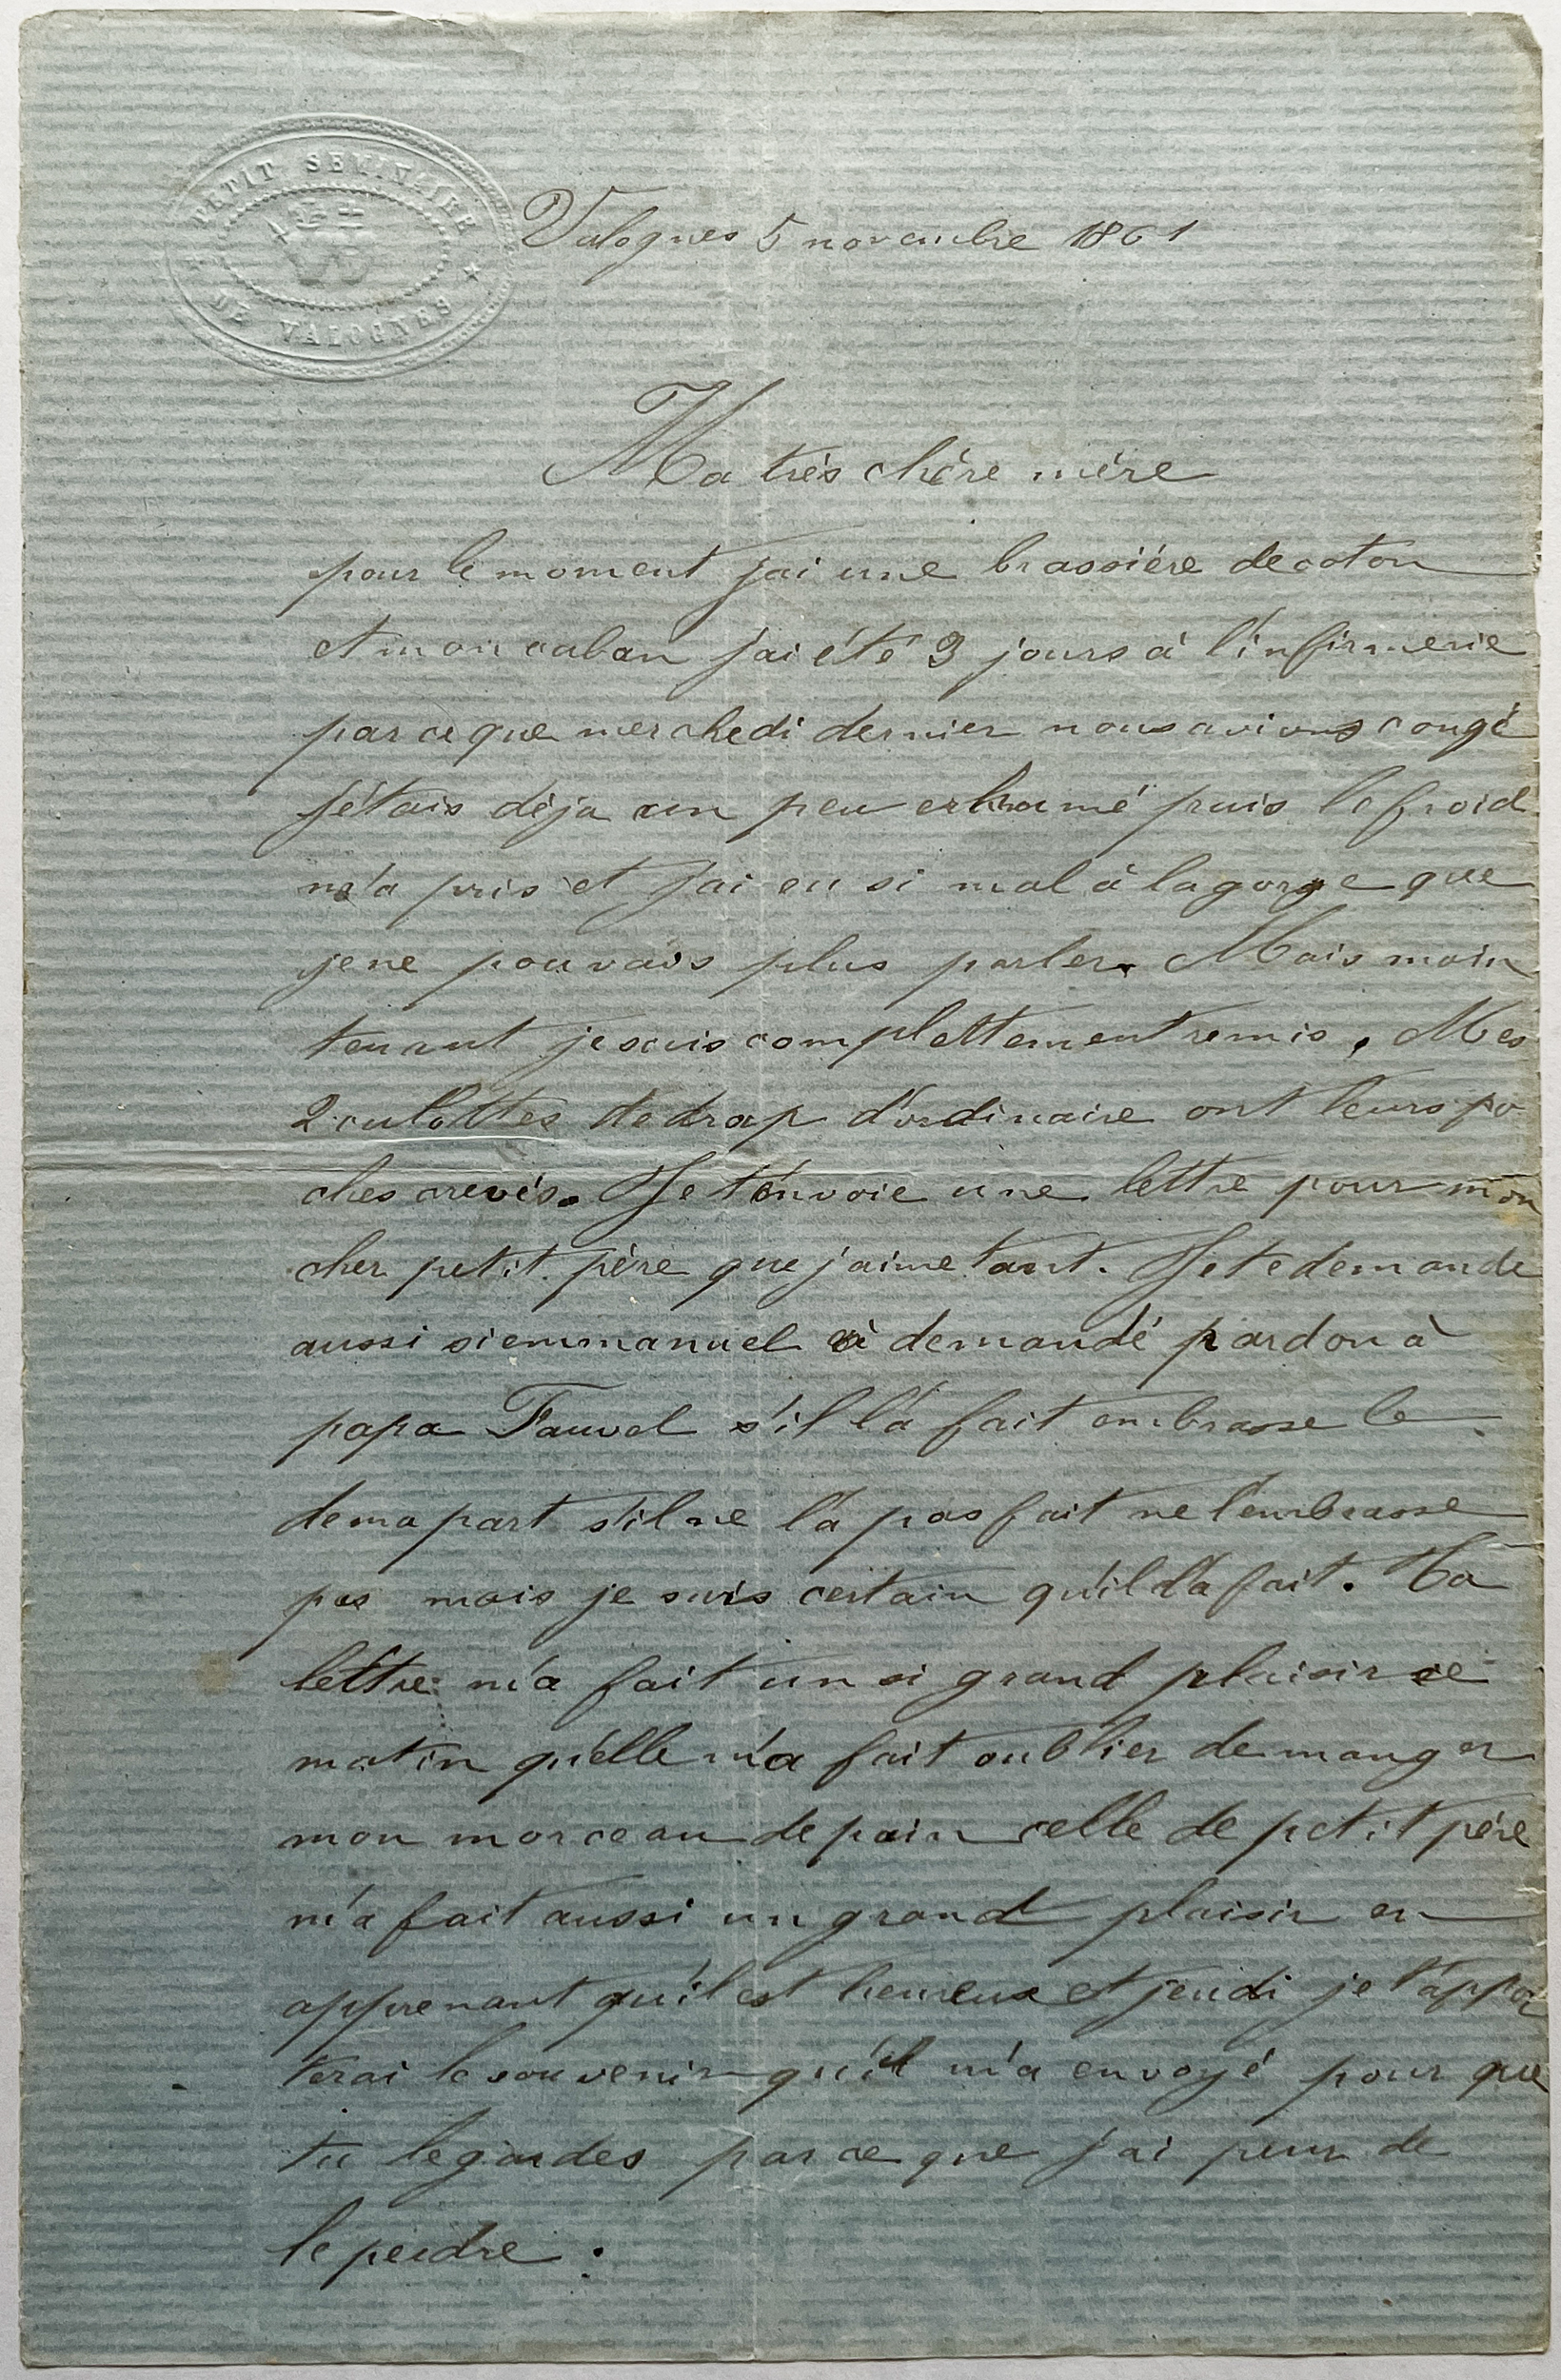 PETIT SEMINAIRE
DE VALOGNES
Valognes 5 novembre 1861
Ma très chère mère
pour le moment j'ai une brassière de coton
et mon caban j'ai été 3 jours à l'infirmerie
parceque merchedi dernier nous avions congé
j'étais déja un peu enrhumé puis le froid
m'a pris et j'ai eu si mal à la gorge que
je ne pouvais plus parler. Mais main
tenant je suis complettement remis. Mes
2 culottes de drap d'ordinaire ont leurs po
ches crevés. Je t'envoie une lettre pour mon
cher petit père que j'aime tant. Je te demande
aussi si emmanuel à demandé pardon à
papa Fauvel s'il l'a fait embrasse le
de ma part s'il ne l'a pas fait ne l'embrasse
pas mais je suis certain qu'il l'a fait. Ta
lettre m'a fait un si grand plaisir ce
matin qu'elle m'a fait oublier de manger
mon morceau de pain celle de petit père
m'a fait aussi un grand plaisir en
apprenant qu'il est heureux et jeudi je t'appor
terai le souvenir qu'il m'a envoyé pour que
tu le gardes parceque j'ai peur de
le perdre.